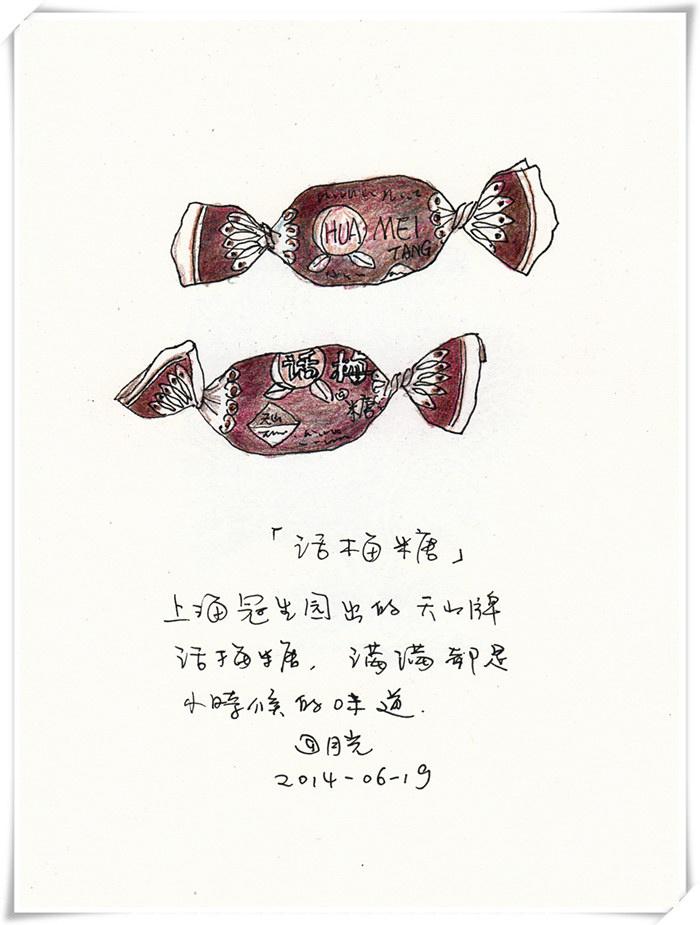 HUA MEI
TANG
话梅
糖
天山
「话梅糖」
上海冠生园出的天山牌
话梅糖，满满都是
小時候的味道.
@月光
2014-06-19